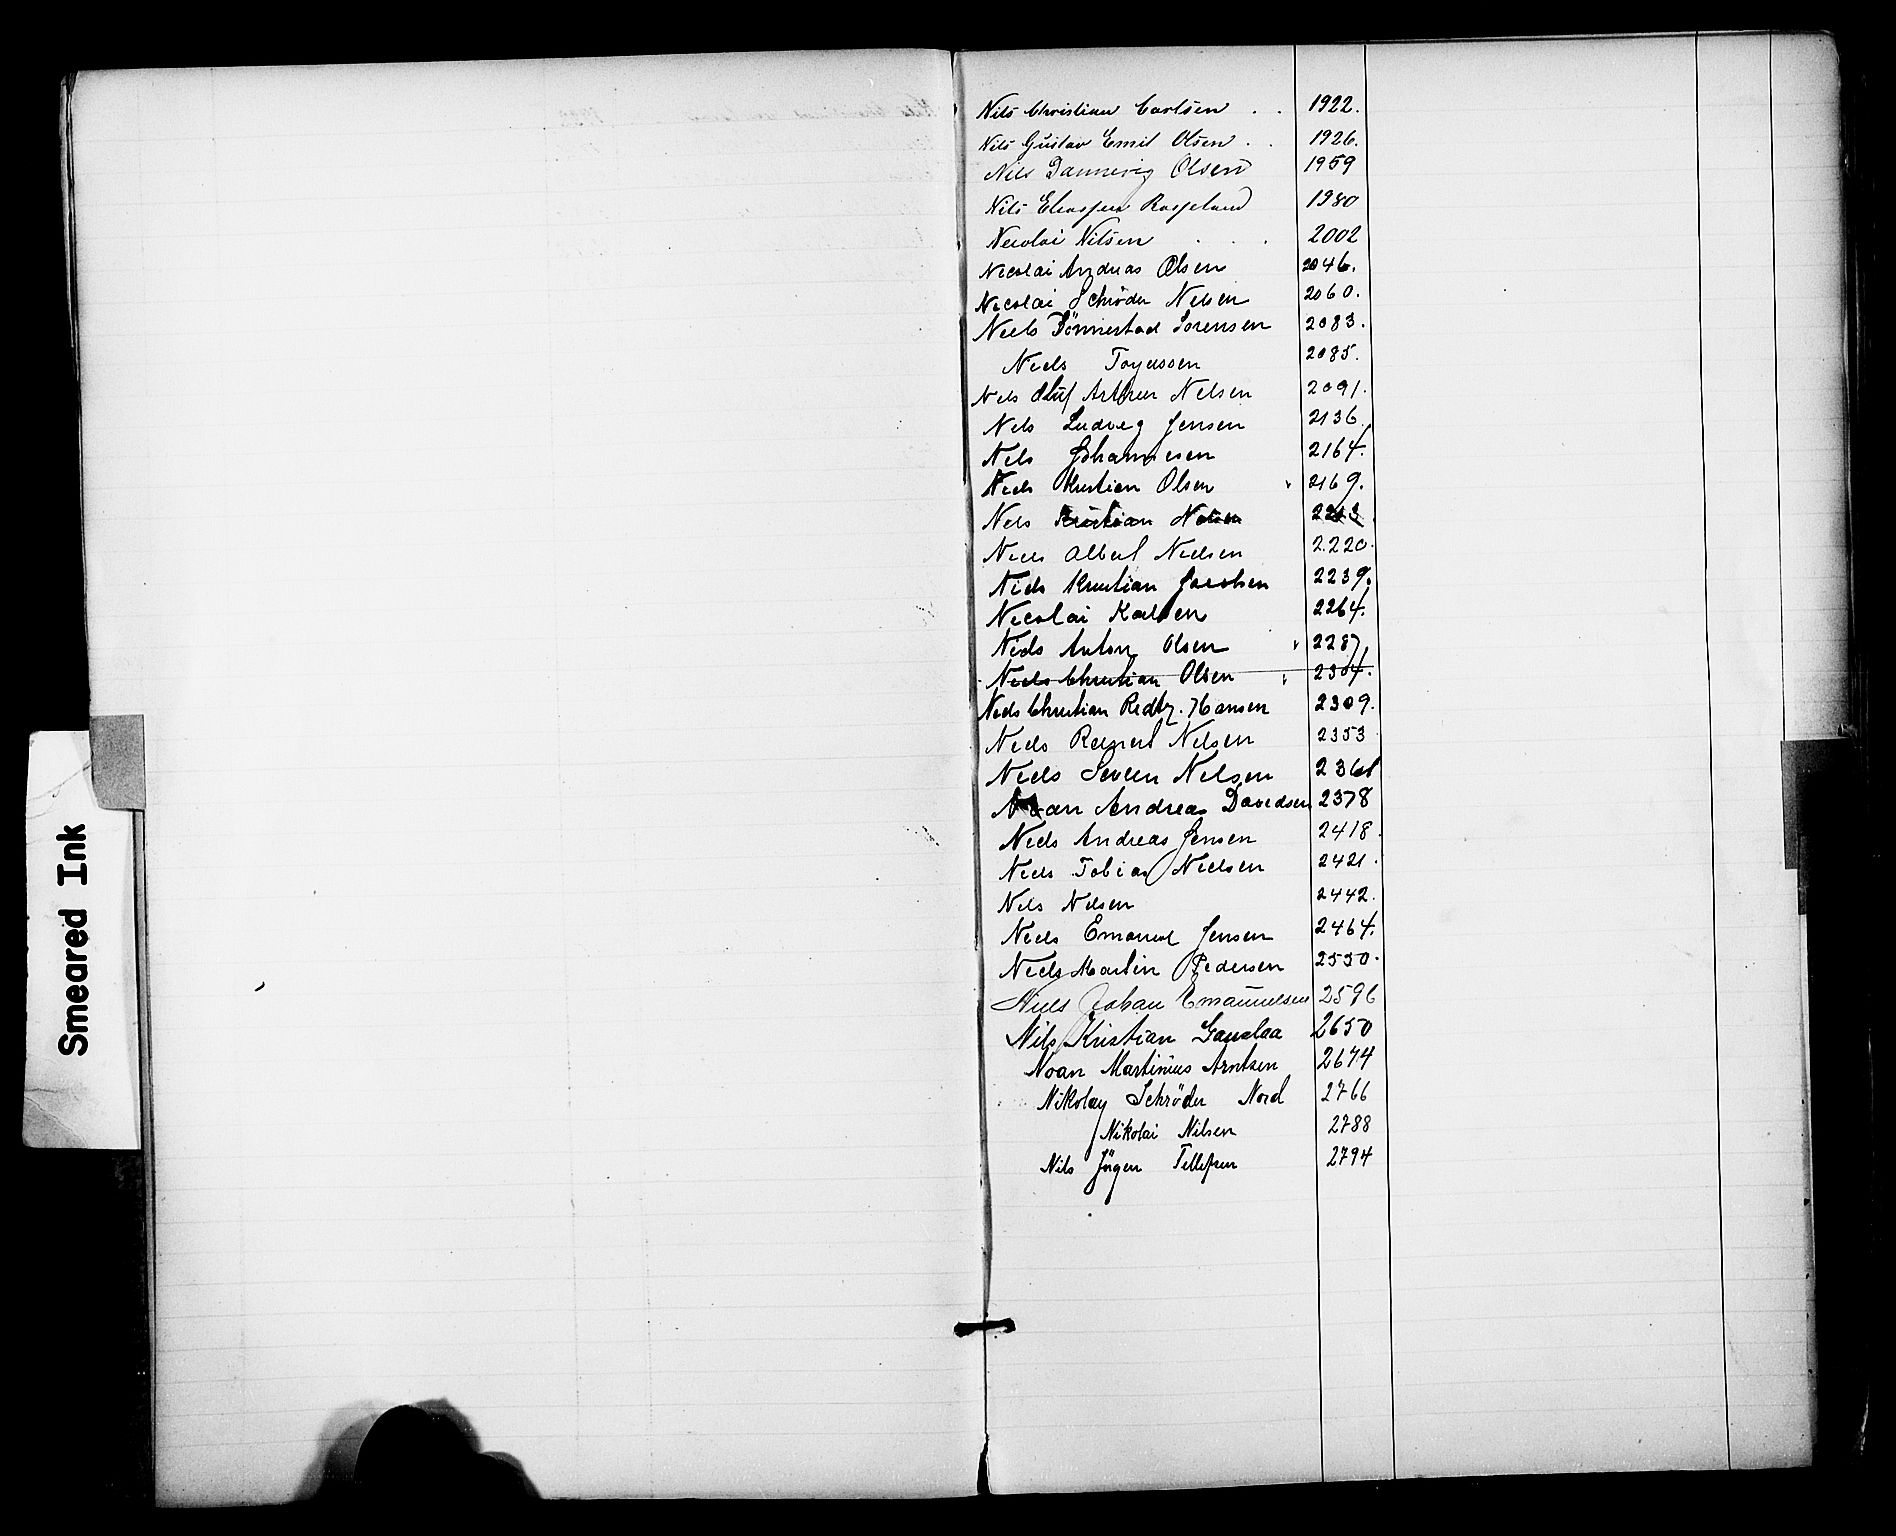 Smeared Ink
Nils Christian Carlsen . . 1922.
Nils Gustav Emil Olsen . . 1926.
Nils Dannevig Olsen 1959
Nils 1980
Nicolai Nilsen . . . 2002
Nicolai Andreas Olsen 2046.
Nicolai Schrøder Nilsen 2060.
Niels Tönnestad Sorensen 2083.
Niels 2085.
Niels Oluf Arthur Nilsen 2091.
Nils Ludvig Jensen 2136.
Nils Johannesen 2164.
Niels Kristian Olsen 2169.
Nils Kristian Nilsen
Niels Albert Nielsen 2220.
Niels Kristian Jacobsen 2239.
Nicolai Karlsen 2264.
Niels Anton Olsen 2287.
Niels Christian Olsen 2304.
Niels Christian Redtz. Hansen 2309.
Niels Nilsen 2353
Niels Severin Nilsen 2361
Noan Andreas Davidsen 2378
Niels Andreas Jensen 2418.
Niels Tobias Nielsen 2421.
Nils Nilsen 2442.
Niels Emanuel Jensen 2464.
Niels Martin Pedersen 2550.
Niels Johan Emanuelsen 2596
Nils Kristian 2650
Noan Martinius Arntsen 2674
Nikolay Schröder Nord 2766
Nikolai Nilsen 2788
Nils Jörgen Tellefsen 2794